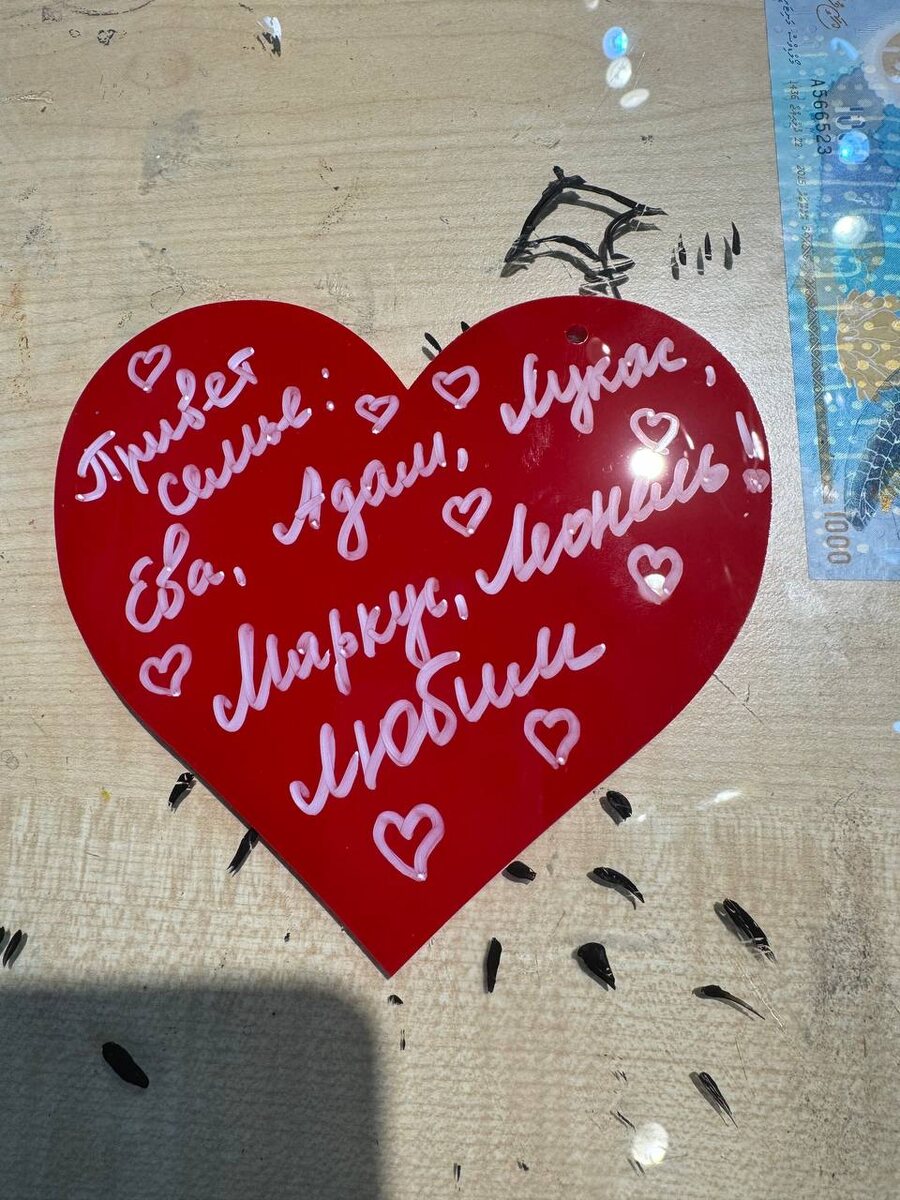 Привет
семье:
Ева, Адам, Лукас,
Маркус, Леониль!
Любим
A566523
1000